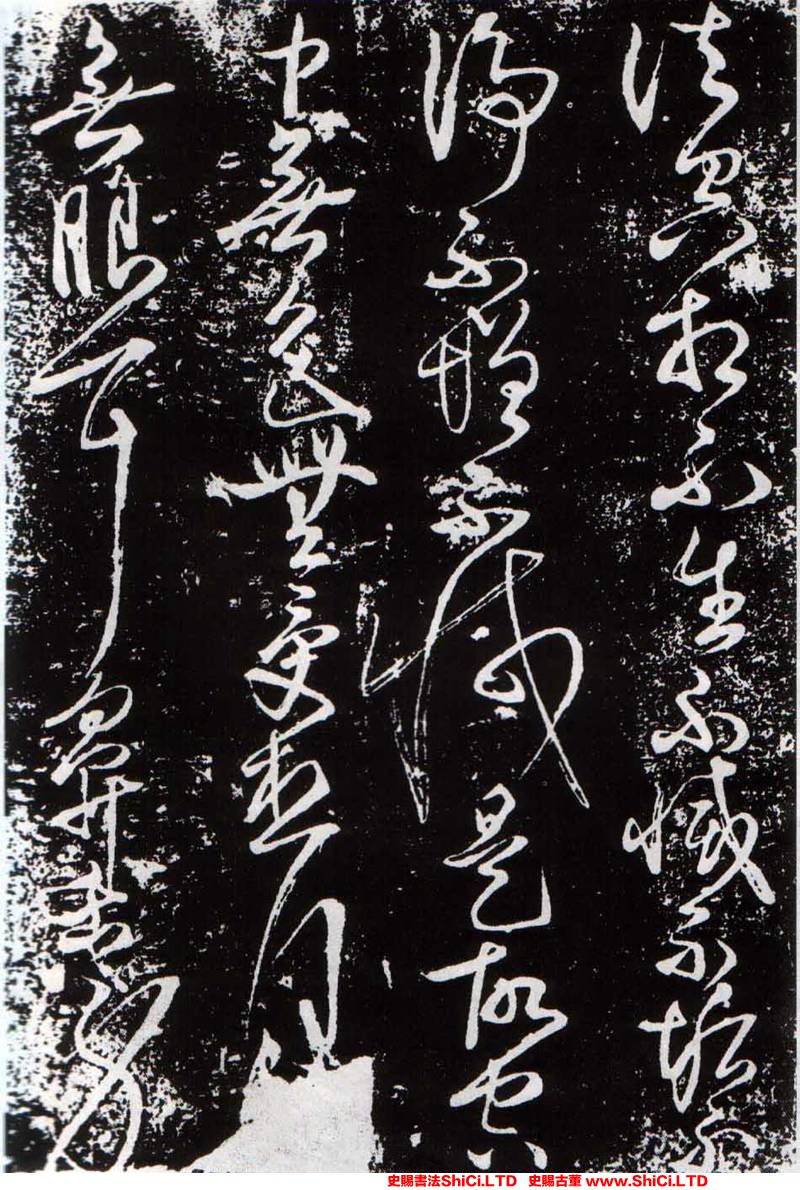 法空相不生不滅不垢不
淨不增不減是故空
中無色無受想
無眼耳鼻舌身
史賜書法ShiCi.LTD 史賜古董 www.ShiCi.LTD